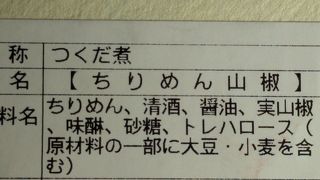 称 つくだ煮
名 【ちりめん山椒】
料名 ちりめん、清酒、醤油、実山椒
、味醂、砂糖、トレハロース(
原材料の一部に大豆・小麦を含
む)